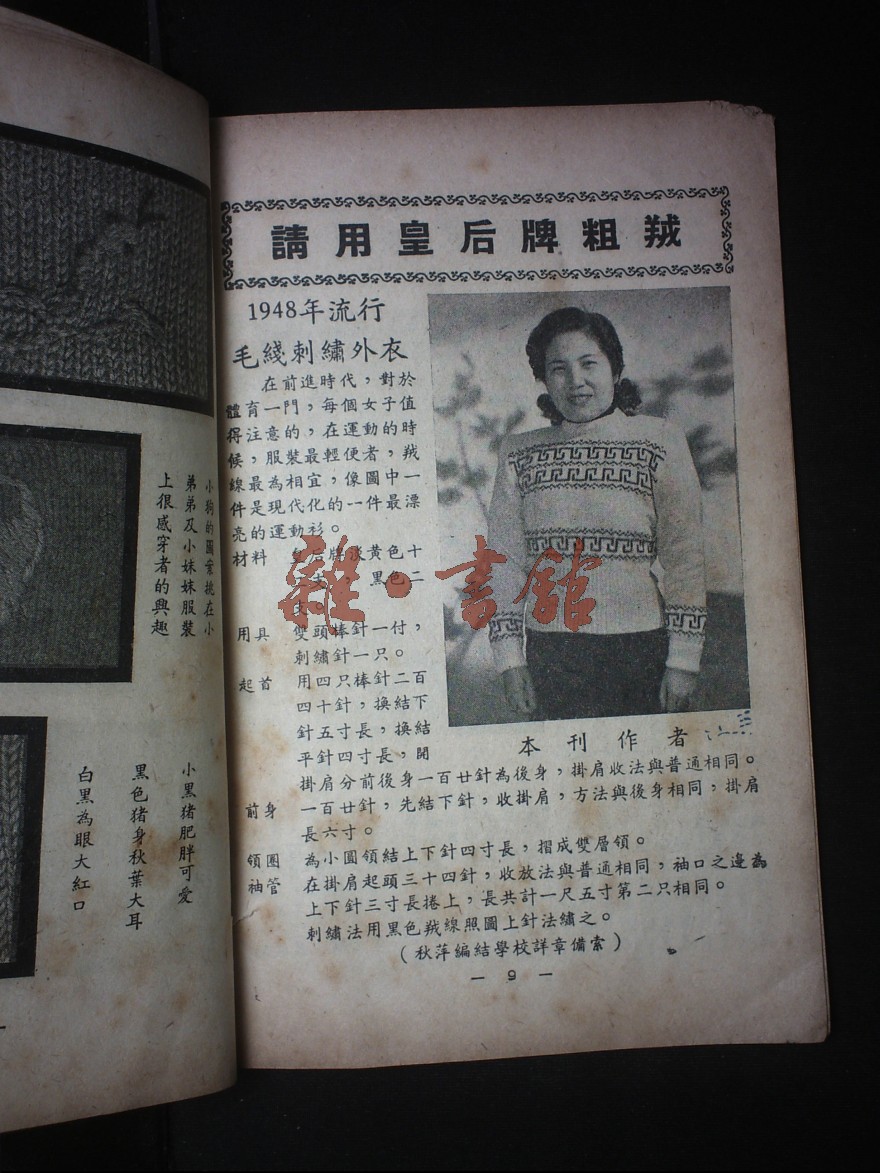 請用皇后牌粗羢
1948年流行
毛綫刺繡外衣
在前進時代，對於
體育一門，每個女子值
得注意的，在運動的時
候，服裝最輕便者，羢
線最為相宜，像圖中一
件是現代化的一件最漂
亮的運動衫。
材料 皇后牌淡黃色十
支，黑色二
支。
用具 雙頭棒針一付，
刺繡針一只。
起首 用四只棒針二百
四十針，換結下
針五寸長，換結
平針四寸長，開
掛肩分前後身一百廿針為後身，掛肩收法與普通相同。
前身 一百廿針，先結下針，收掛肩，方法與後身相同，掛肩
長六寸。
領圈 為小圓領結上下針四寸長，摺成雙層領。
袖管 在掛肩起頭三十四針，收放法與普通相同，袖口之邊為
上下針三寸長捲上，長共計一尺五寸第二只相同。
刺繡法用黑色羢線照圖上針法繡之。
（秋萍編結學校詳章備索）
— 9 —
本刊作者
雜·書館
小狗的圖案挑在小
弟弟及小妹妹服裝
上很感穿者的興趣
小黑猪肥胖可愛
黑色猪身秋葉大耳
白黑為眼大紅口